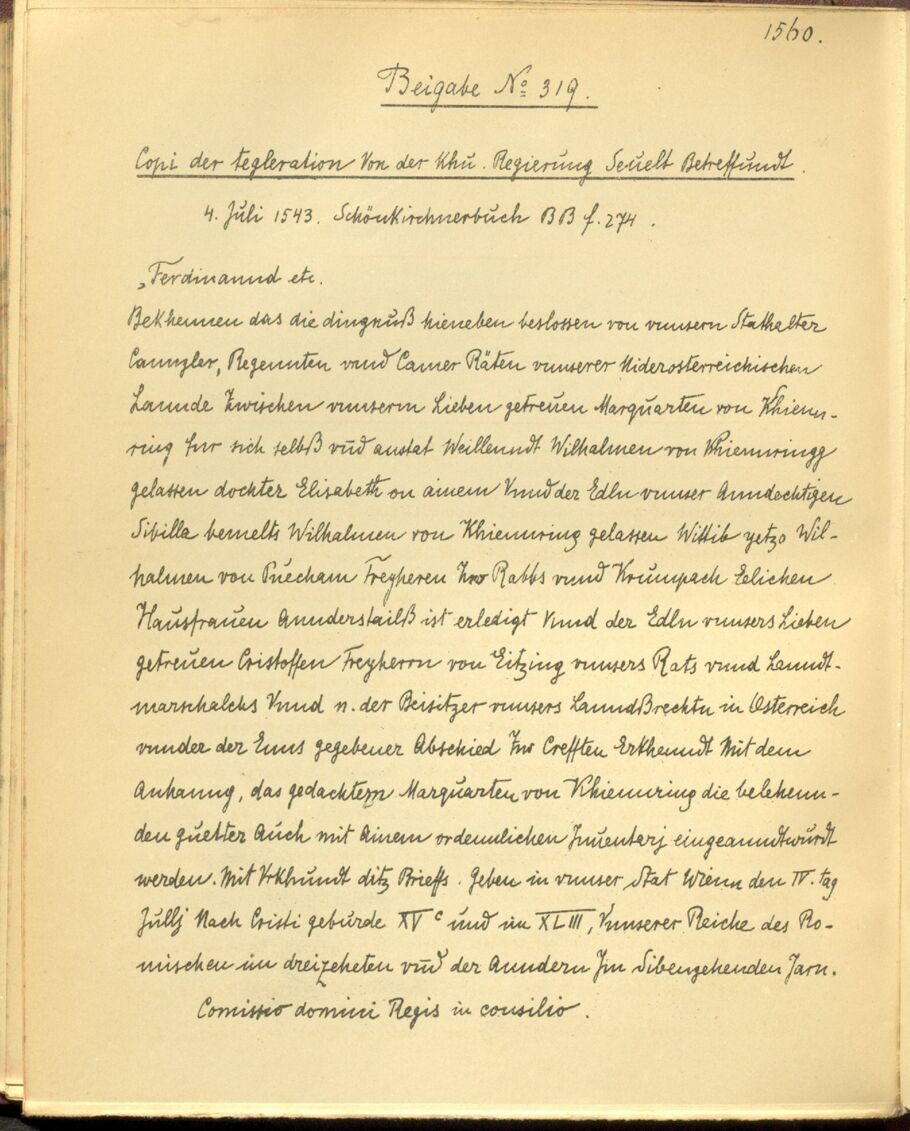 1560.
Beigabe No 319.
Copi der tegleration Von der Khu. Regierung Seuelt Betreffundt.
4. Juli 1543. Schönkirchnerbuch BB f. 274.
„Ferdinannd etc.
Bekhennen das die dingnuß hieneben beslossen von vnnsern Stathalter
Canngler, Regennten vnnd Camer Räten vnnserer Niderosterreichischen
Lannde Zwischen vnnserm Lieben getreuen Marquarten von Khienn-
ring fur sich selbß vnd anstat Weillenndt Wilhalmen von Khiennringg
gelassen dochter Elisabeth on ainem Vnnd der Edln vnnser Anndechtigen
Sibilla bemelts Wilhalmen von Khiennring gelassen Wittib yetzo Wil-
halmen von Puecham Freyheren Zw Rabbs vnnd Krumpach Eelichen
Hausfrauen Annderstailß ist erledigt Vnnd der Edln vnnsers Lieben
getreuen Cristoffen Freyherrn von Eitzing vnnsers Rats vnnd Lanndt-
marschalchs Vnnd n. der Beisitzer vnnsers Lanndßrechtn in Osterreich
vnnder der Enns gegebener Abschied Inn Crefften Erkhenndt Mit dem
Anhanng, das gedachtem Marquarten von Khiennring die belehenn-
den guetter Auch mit Ainem ordennlichen Inuentarj eingeanndtwurdt
werden. Mit Vrkhundt ditz Brieffs. Geben in vnnser Stat Wienn den IV. tag
Jullj Nach Cristi geburde XV c und im XLIII, Vnnserer Reiche des Ro-
mischen im dreizeheten vnd der Anndern Im Sibengehenden Jarn.
Comissio domini Regis in consilio.